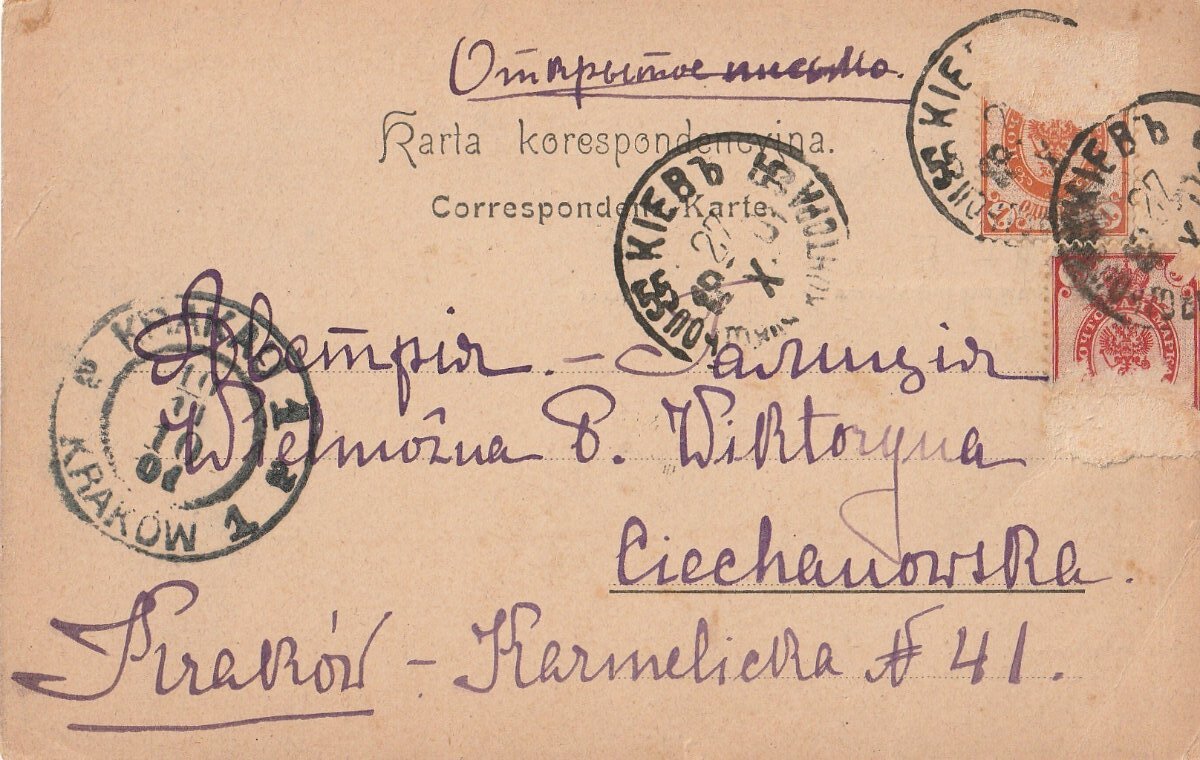 Открытое письмо.
Karta korespondencyjna.
Correspondenz-Karte.
КІЕВЪ
КІЕВЪ
КІЕВЪ
27
X
01
КОНТОРА
Австрія - Галиція
Wielmożna P. Wiktoryna
Ciechanowska.
Kraków - Karmelicka # 41.
KRAKAU 1
KRAKÓW 1
01